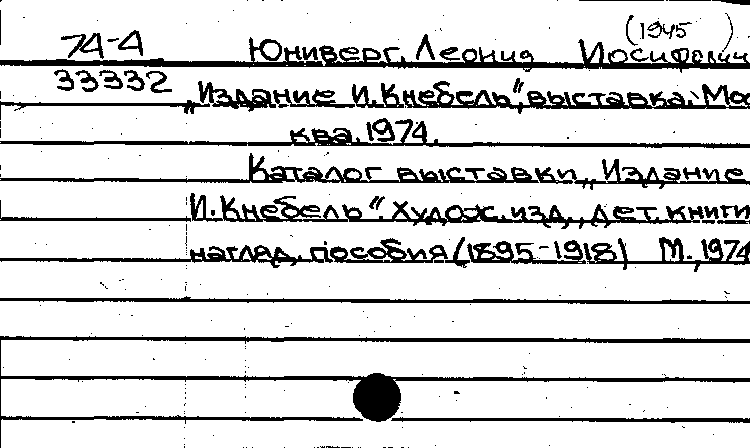 (1945 )
74-4 Юниверг, Леонид Иосифович
33332 „Издание И. Кнебель", выставка. Мос
ква. 1974.
Каталог выставки „Издание
И. Кнебель". Худож. изд., дет. книги
нагляд. пособия (1895-1918) М., 1974